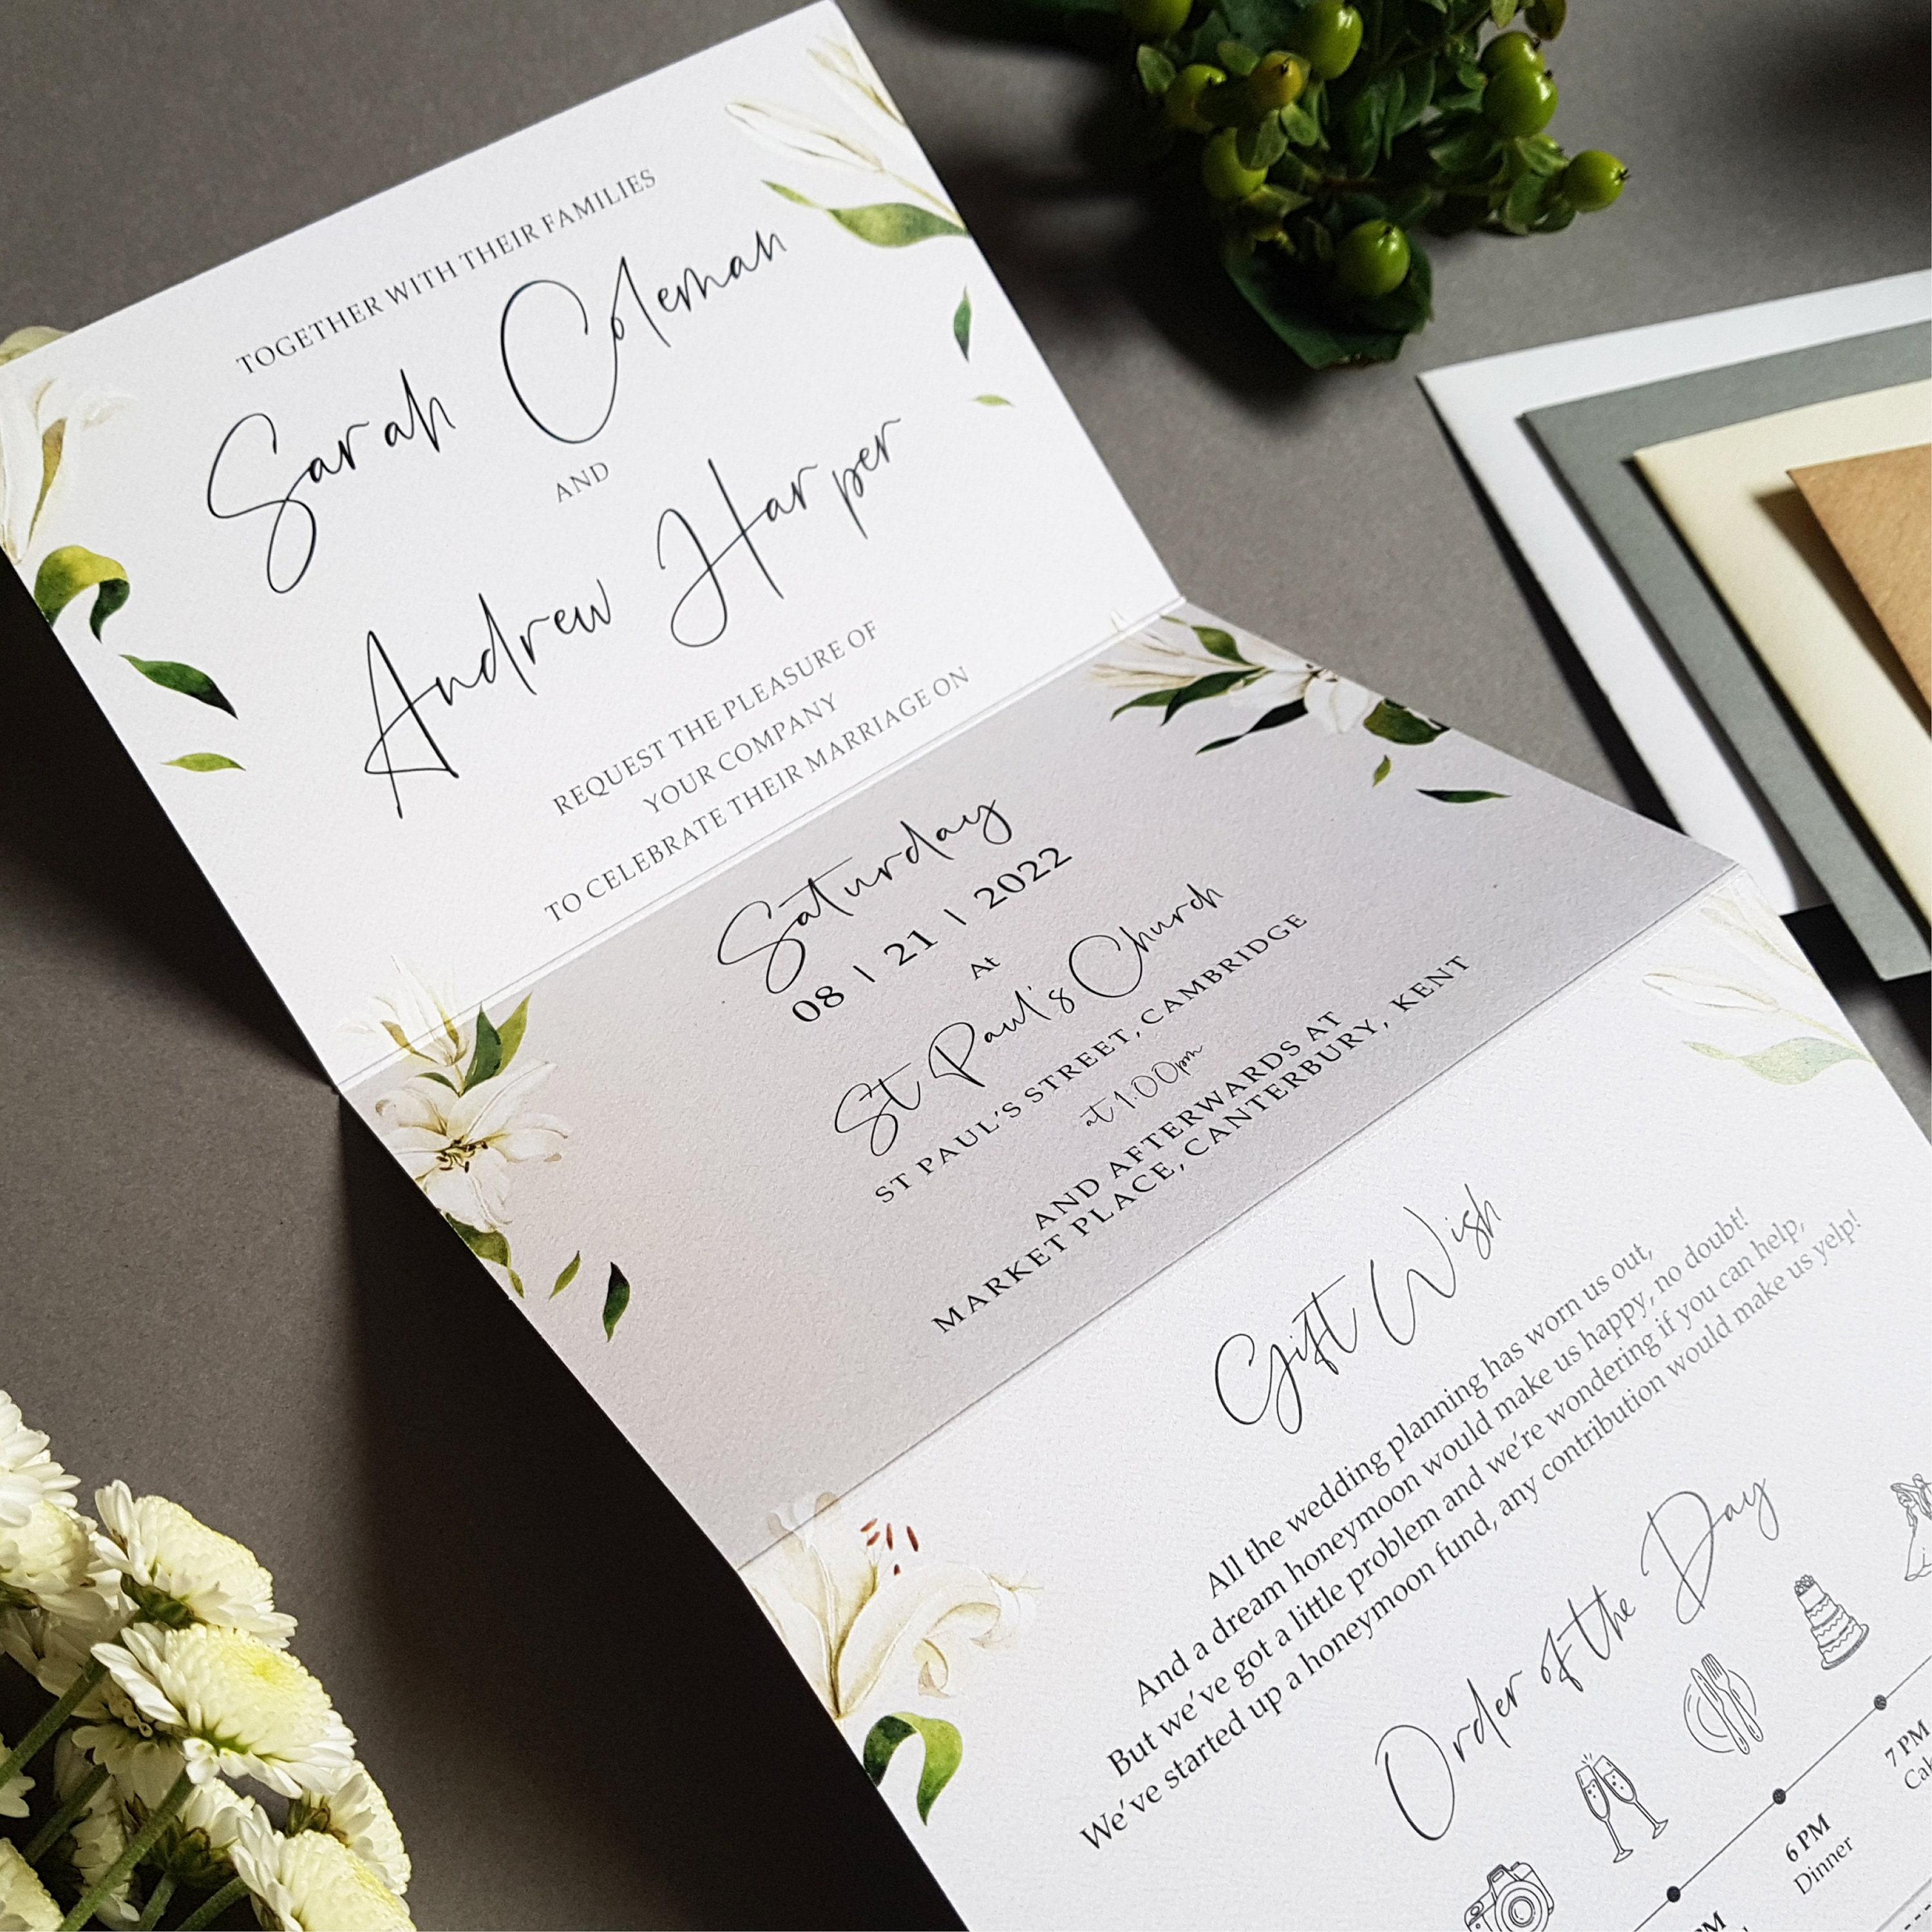 TOGETHER WITH THEIR FAMILIES
Sarah Coleman
AND
Andrew Harper
REQUEST THE PLEASURE OF
YOUR COMPANY
TO CELEBRATE THEIR MARRIAGE ON
Saturday
08 | 21 | 2022
At
St Paul's Church
ST PAUL'S STREET, CAMBRIDGE
at 1:00pm
AND AFTERWARDS AT
MARKET PLACE, CANTERBURY, KENT
Gift Wish
All the wedding planning has worn us out,
And a dream honeymoon would make us happy, no doubt!
But we've got a little problem and we're wondering if you can help,
We've started up a honeymoon fund, any contribution would make us yelp!
Order of the Day
6 PM
Dinner
7 PM